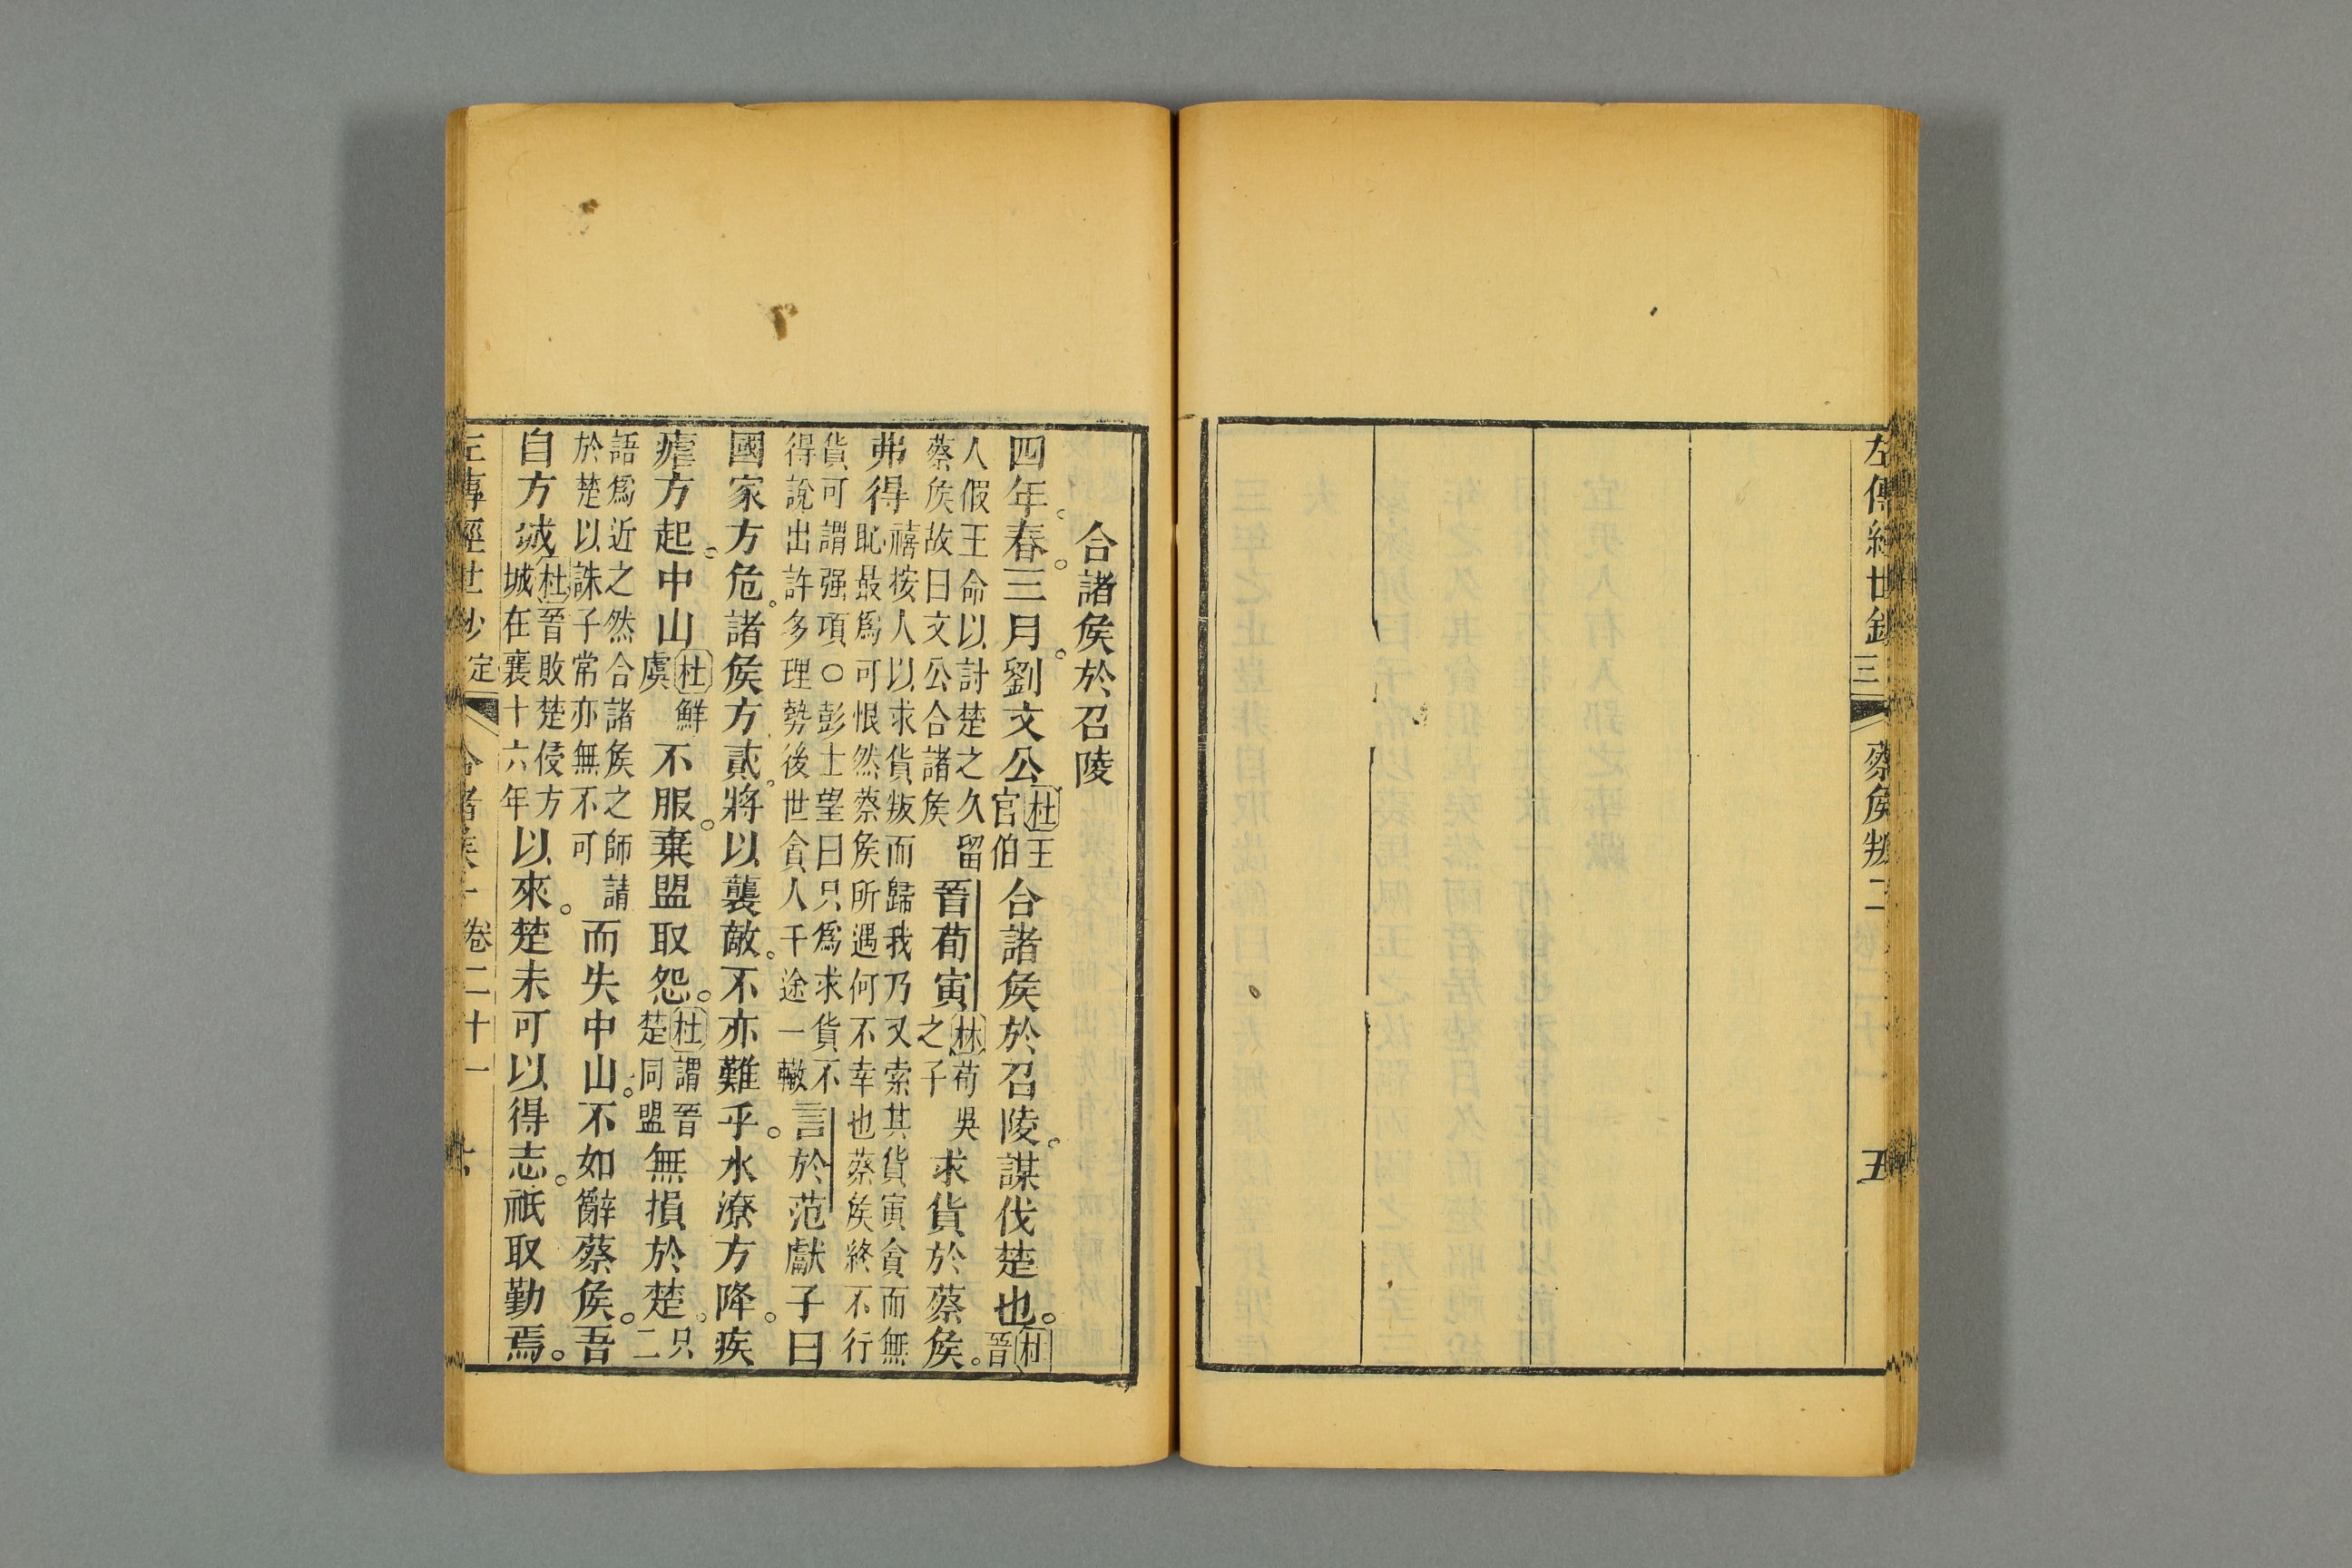 左傳經世鈔 三 蔡侯叛二 五
合諸侯於召陵
四年。春。三月。劉文公杜王官伯合諸侯於召陵。謀伐楚也。杜晉
人假王命以討楚之久留蔡侯故曰文公合諸侯晉荀寅林荀吳之子求貨於蔡侯。
弗得禧按人以求貨叛而歸我乃又索其貨寅貪而無恥最爲可恨然蔡侯所遇何不幸也蔡侯終不行
貨可謂强項○彭士望曰只爲求貨不得說出許多理勢後世貪人千途一轍言於范獻子曰
國家方危。諸侯方貳。將以襲敵。不亦難乎。水潦方降。疾
瘧方起。中山杜鮮虞不服。棄盟取怨。杜謂晉楚同盟無損於楚。只二
語爲近之然合諸侯之師請於楚以誅子常亦無不可而失中山。不如辭蔡侯。吾
自方城杜晉敗楚侵方城在襄十六年以來。楚未可以得志。祗取勤焉。
左傳經世鈔 定 合諸侯 卷二十一